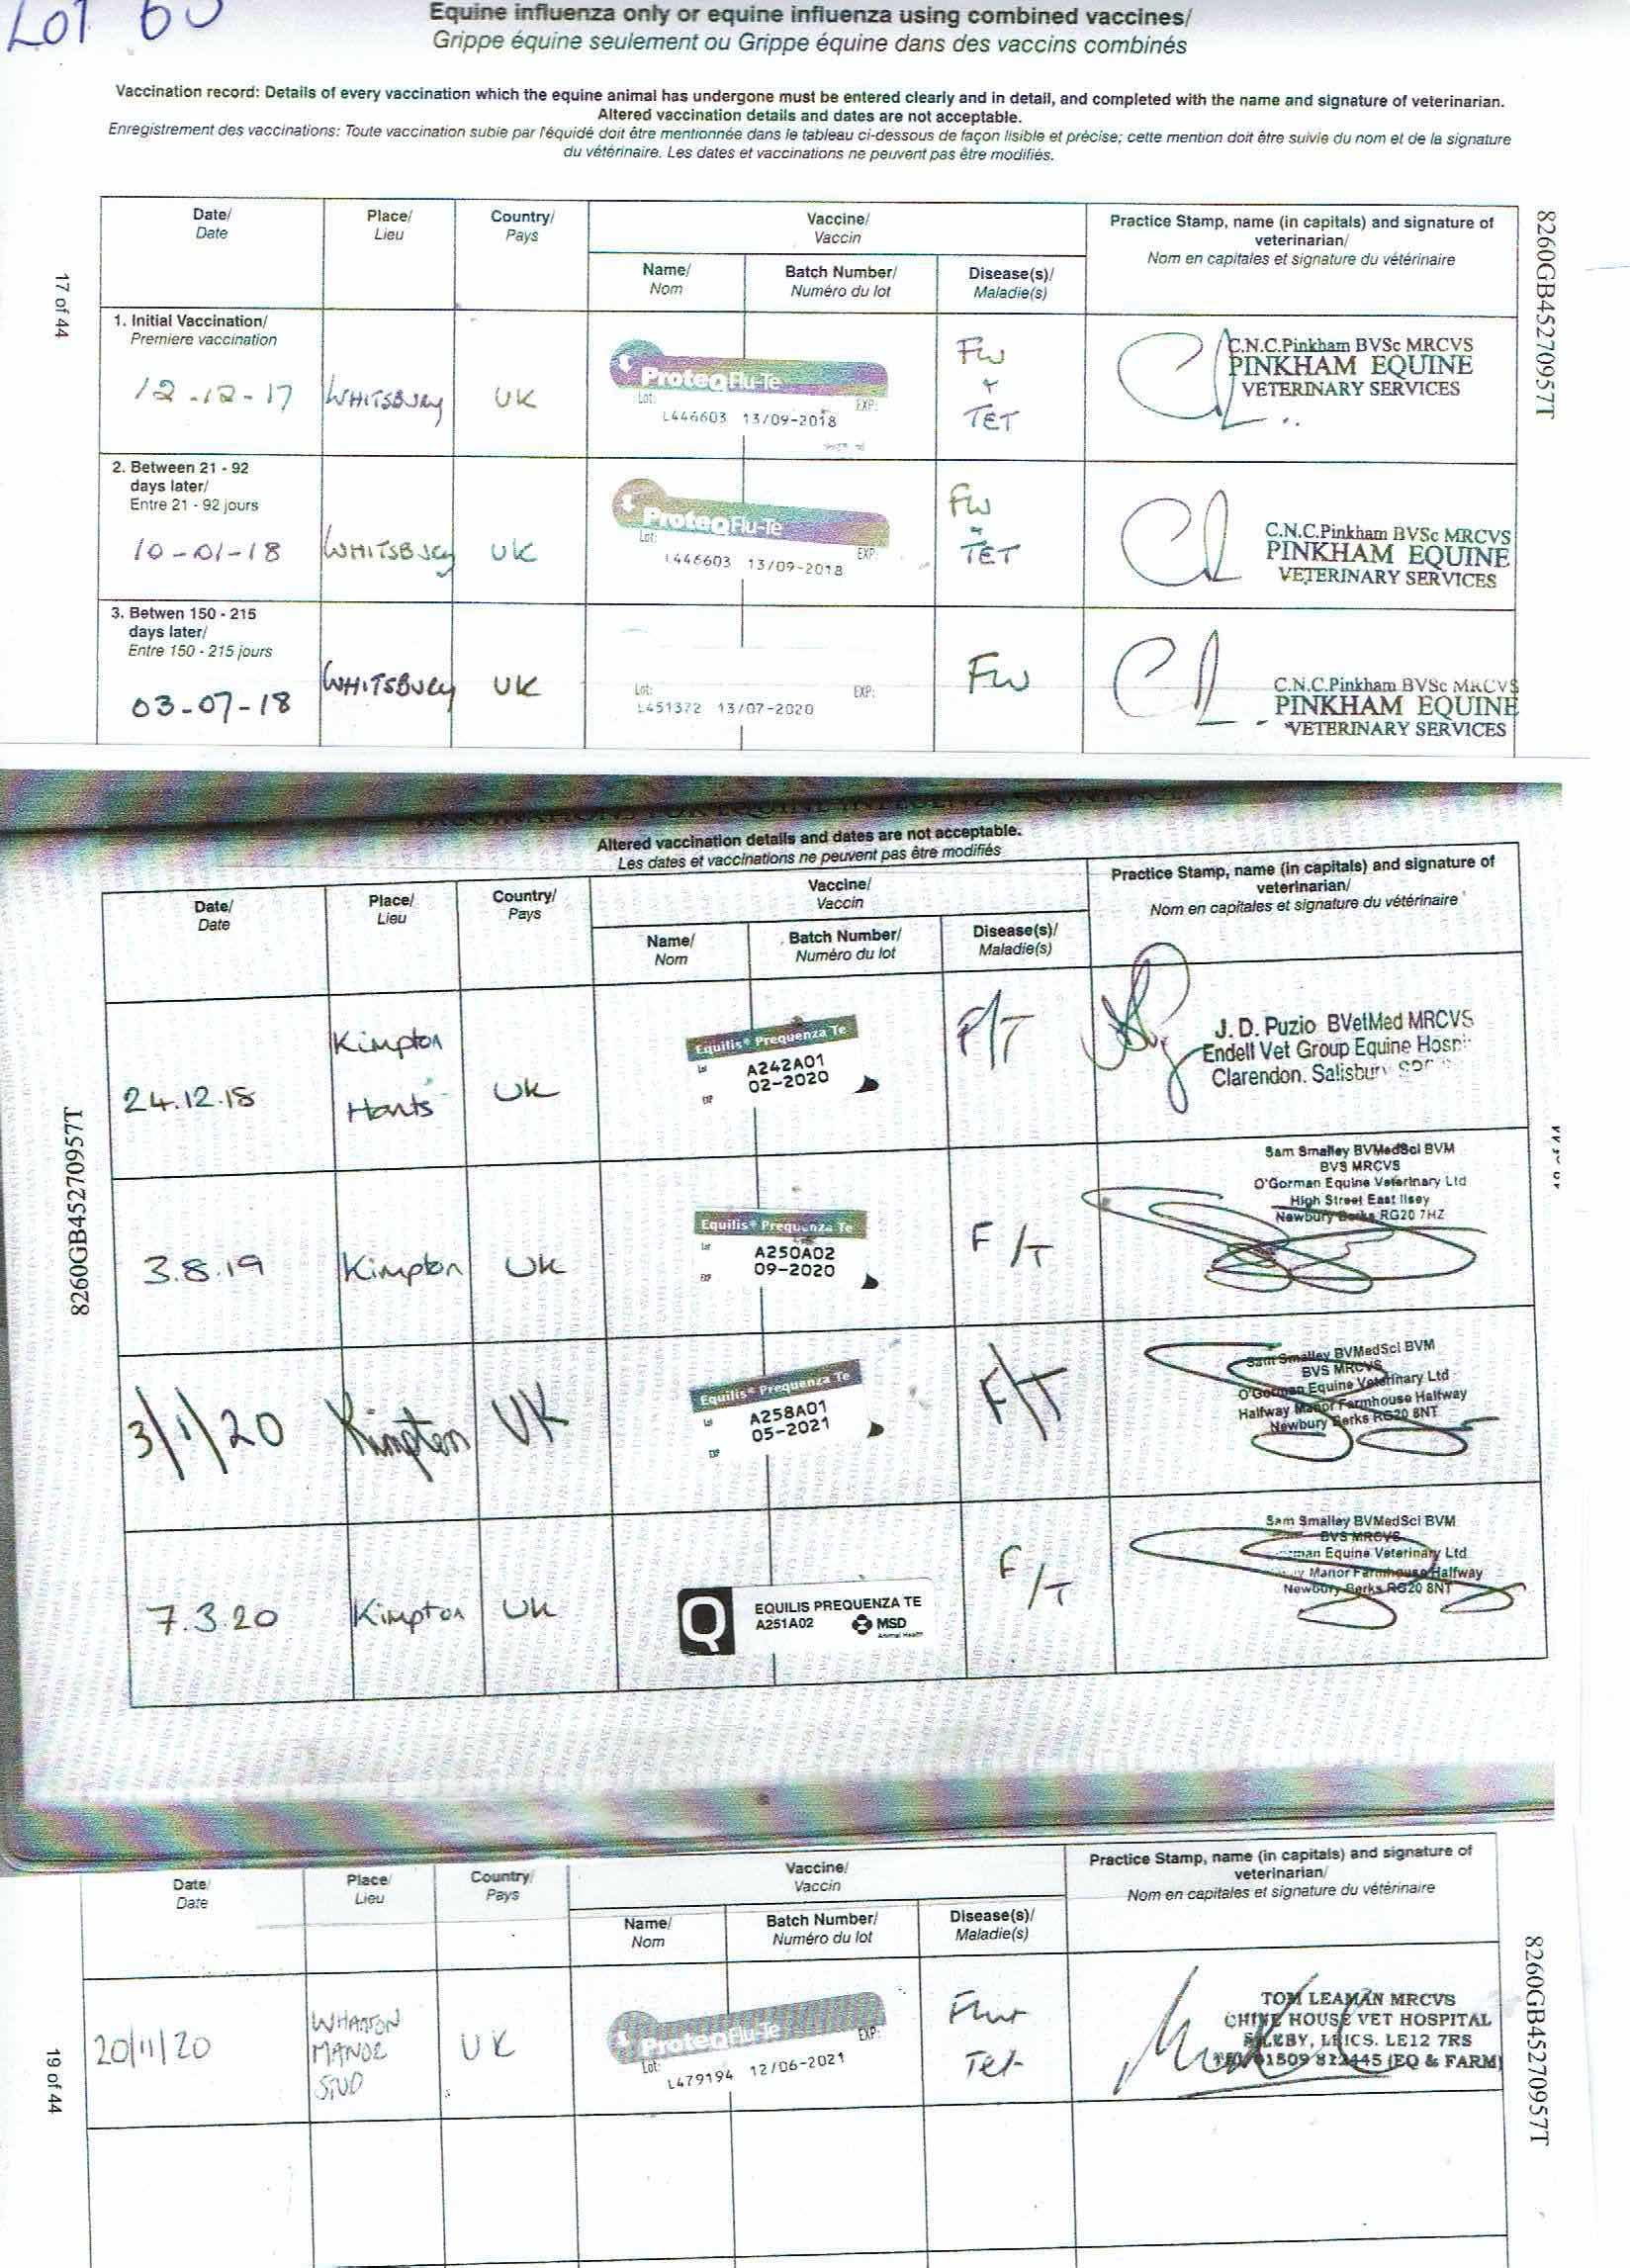 LOT 60
Equine influenza only or equine influenza using combined vaccines/
Grippe équine seulement ou Grippe équine dans des vaccins combinés
Vaccination record: Details of every vaccination which the equine animal has undergone must be entered clearly and in detail, and completed with the name and signature of veterinarian.
Altered vaccination details and dates are not acceptable.
Enregistrement des vaccinations: Toute vaccination subie par l'équidé doit être mentionnée dans le tableau ci-dessous de façon lisible et précise; cette mention doit être suivie du nom et de la signature
du vétérinaire. Les dates et vaccinations ne peuvent pas être modifiés.
17 of 44
8260GB45270957T
Date/
Date
Place/
Lieu
Country/
Pays
Vaccine/
Vaccin
Name/
Nom
Batch Number/
Numéro du lot
Disease(s)/
Maladie(s)
Practice Stamp, name (in capitals) and signature of
veterinarian/
Nom en capitales et signature du vétérinaire
1. Initial Vaccination/
Premiere vaccination
12-12-17
WHITSBURY
UK
ProteqFlu-Te
Lot: EXP:
L446603 13/09-2018
TET
C.N.C.Pinkham BVSc MRCVS
PINKHAM EQUINE
VETERINARY SERVICES
2. Between 21 - 92
days later/
Entre 21 - 92 jours
10-01-18
WHITSBURY
UK
ProteqFlu-Te
Lot: EXP:
L446603 13/09-2018
TET
C.N.C.Pinkham BVSc MRCVS
PINKHAM EQUINE
VETERINARY SERVICES
3. Betwen 150 - 215
days later/
Entre 150 - 215 jours
03-07-18
WHITSBURY
UK
Lot: EXP:
L451372 13/07-2020
C.N.C.Pinkham BVSc MRCVS
PINKHAM EQUINE
VETERINARY SERVICES
Altered vaccination details and dates are not acceptable.
Les dates et vaccinations ne peuvent pas être modifiés
8260GB45270957T
Date/
Date
Place/
Lieu
Country/
Pays
Vaccine/
Vaccin
Name/
Nom
Batch Number/
Numéro du lot
Disease(s)/
Maladie(s)
Practice Stamp, name (in capitals) and signature of
veterinarian/
Nom en capitales et signature du vétérinaire
24.12.18
Kimpton
Hants
UK
Equilis® Prequenza Te
Lot A242A01
EXP 02-2020
F/T
J. D. Puzio BVetMed MRCVS
Endell Vet Group Equine
Clarendon. Salisbury
3.8.19
Kimpton
UK
Equilis® Prequenza Te
Lot A250A02
EXP 09-2020
F/T
Sam Smalley BVMedSci BVM
BVS MRCVS
O'Gorman Equine Veterinary Ltd
High Street East Ilsey
Newbury Berks RG20 7HZ
3/1/20
Kimpton
UK
Equilis® Prequenza Te
Lot A258A01
EXP 05-2021
F/T
Sam Smalley BVMedSci BVM
BVS MRCVS
O'Gorman Equine Veterinary Ltd
Halfway Manor Farmhouse Halfway
Newbury Berks RG20 8NT
7.3.20
Kimpton
UK
Q
EQUILIS PREQUENZA TE
A251A02 MSD
Animal Health
F/T
Sam Smalley BVMedSci BVM
BVS MRCVS
Equine Veterinary Ltd
Manor Farmhouse Halfway
Newbury Berks RG20 8NT
19 of 44
8260GB45270957T
Date/
Date
Place/
Lieu
Country/
Pays
Vaccine/
Vaccin
Name/
Nom
Batch Number/
Numéro du lot
Disease(s)/
Maladie(s)
Practice Stamp, name (in capitals) and signature of
veterinarian/
Nom en capitales et signature du vétérinaire
20/11/20
MANOR
STUD
UK
ProteqFlu-Te
Lot: EXP:
L479194 12/06-2021
Tet
TOM LEAMAN MRCVS
CHINE HOUSE VET HOSPITAL
LEICS. LE12 7RS
01509 812445 (EQ & FARM)